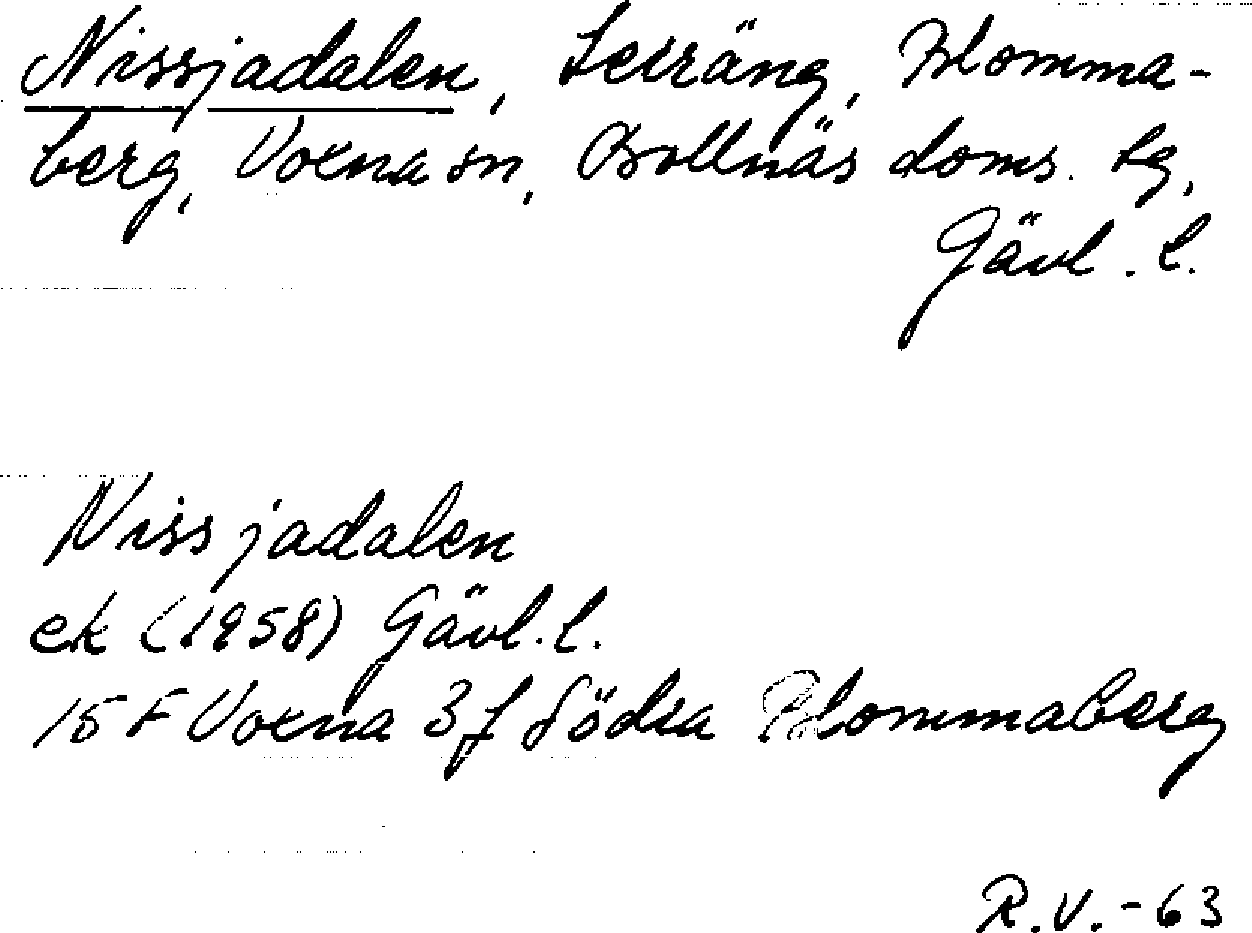 Nissjadalen, Leiräng, Blomma-
berg, Voxna sn, Bollnäs doms. lg,
Gävl. l.
Nissjadalen
ek (1958) Gävl. l.
15 F Voxna 3 f Södra Blommaberg
R.V.-63